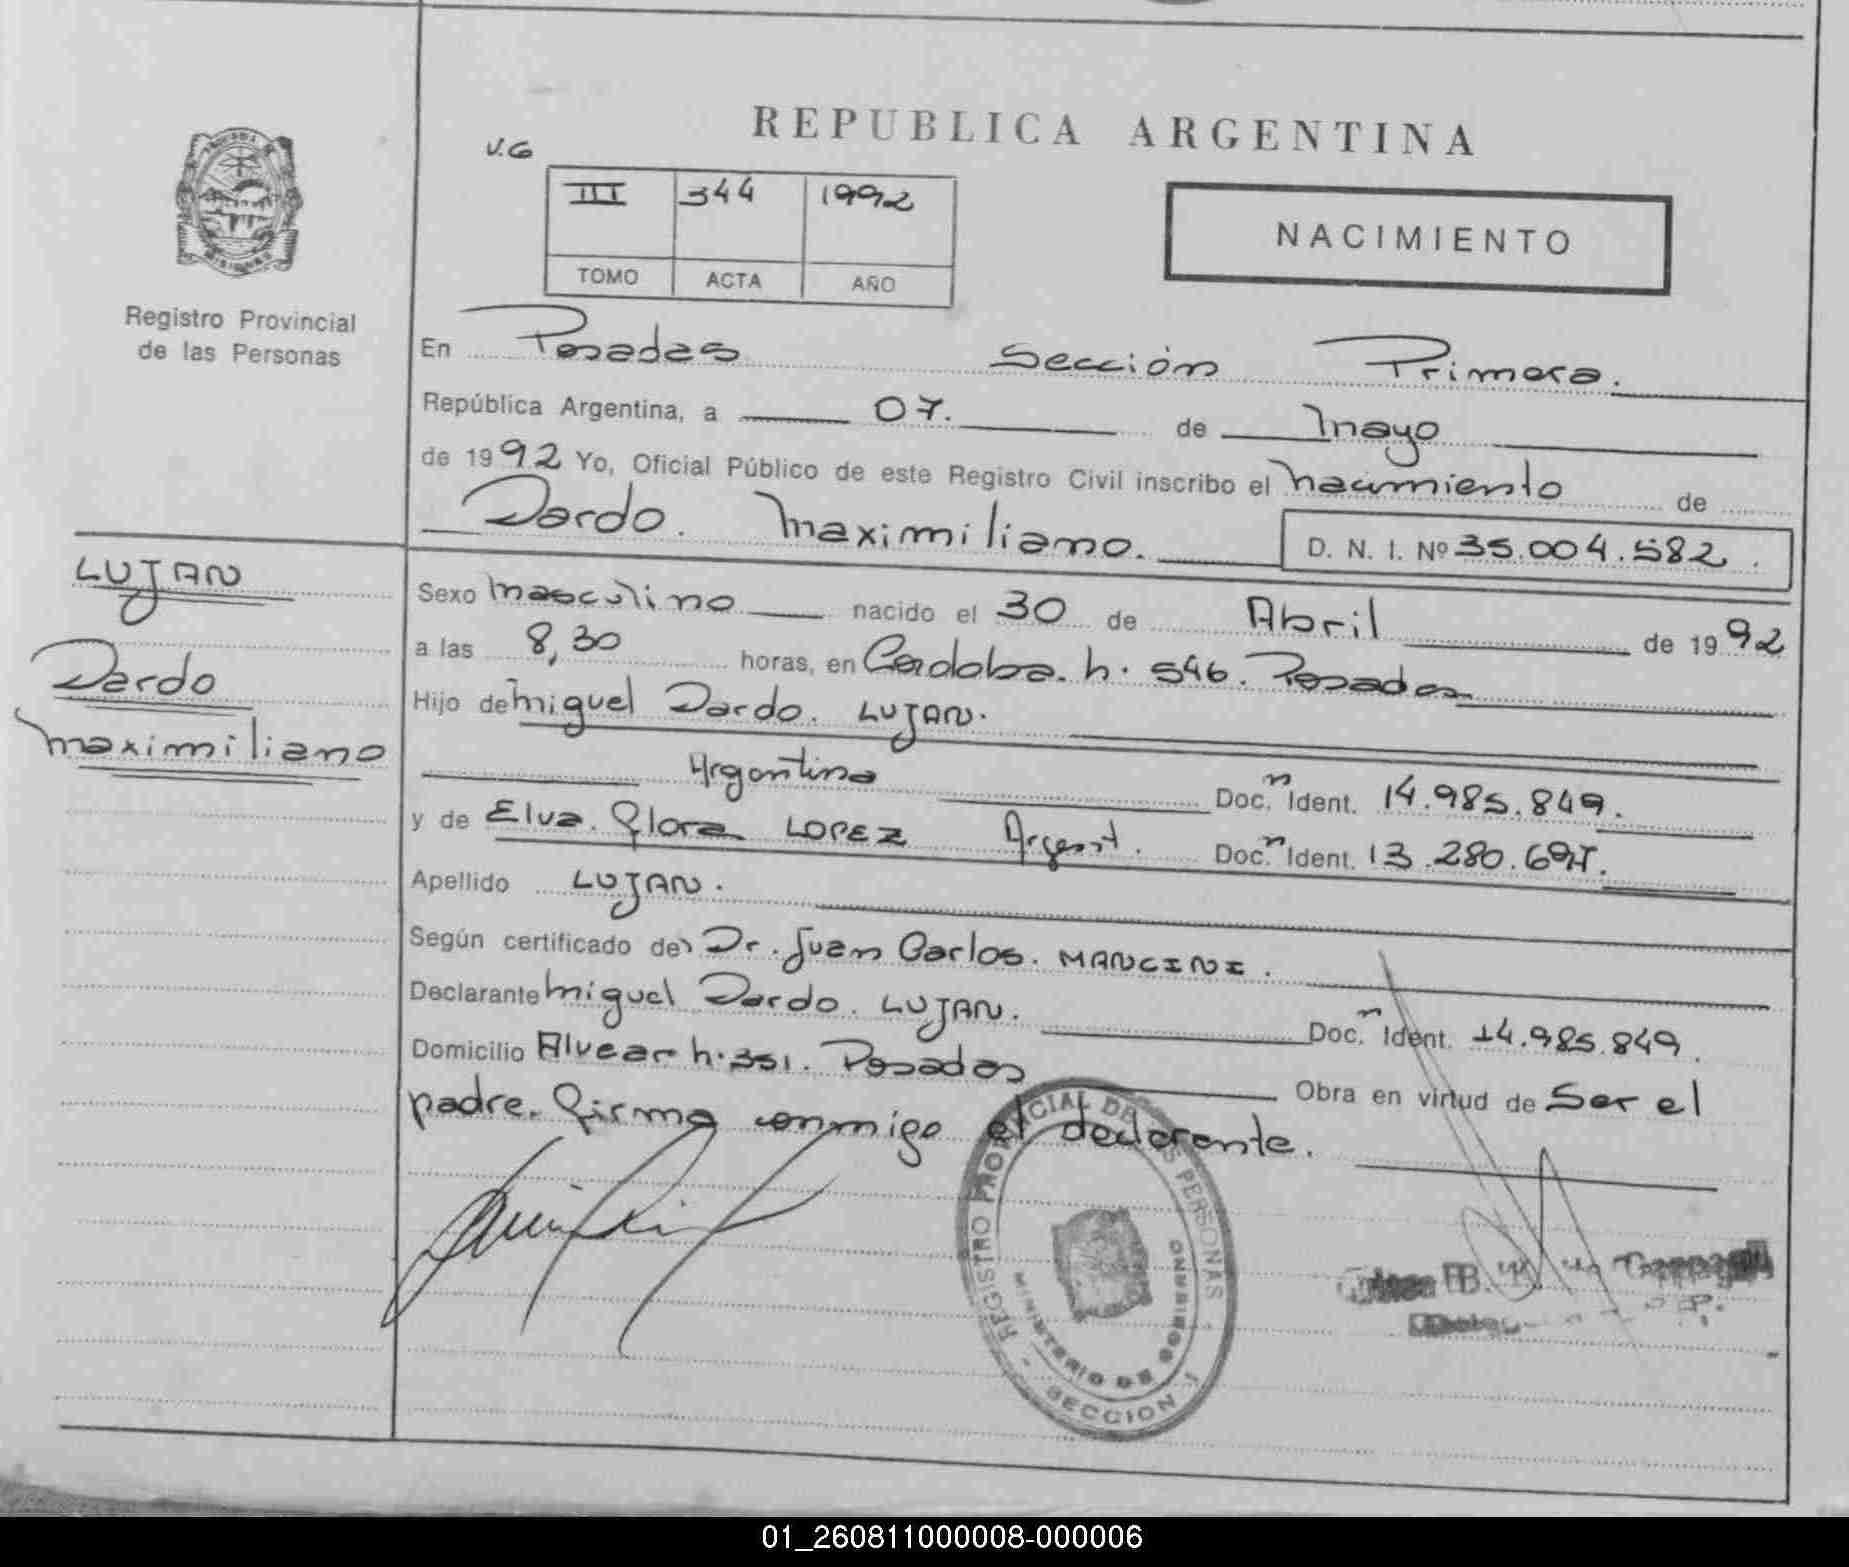 REPUBLICA ARGENTINA
V.G
III 344 1992
TOMO ACTA AÑO
NACIMIENTO
Registro Provincial
de las Personas
En Posadas Sección Primera.
República Argentina, a 07. de Mayo
de 1992 Yo, Oficial Público de este Registro Civil inscribo el nacimiento de
Dardo. Maximiliano. D. N. I. Nº 35.004.582.
LUJAN
Dardo
Maximiliano
Sexo Masculino nacido el 30 de Abril de 1992
a las 8,30 horas, en Cordoba. n. 546. Posadas
Hijo de Miguel Dardo. LUJAN.
Argentino Doc. n Ident. 14.985.849.
y de Elva. Flora LOPEZ Argent. Doc. n Ident. 13.280.697.
Apellido LUJAN.
Según certificado del Dr. Juan Carlos. MANCINI.
Declarante Miguel Dardo. LUJAN. Doc. n Ident. 14.985.849.
Domicilio Alvear n. 351. Posadas Obra en virtud de Ser el
padre. Firma conmigo el declarante.
REGISTRO PROVINCIAL DE LAS PERSONAS
MINISTERIO DE GOBIERNO
SECCION 1
01_260811000008-000006